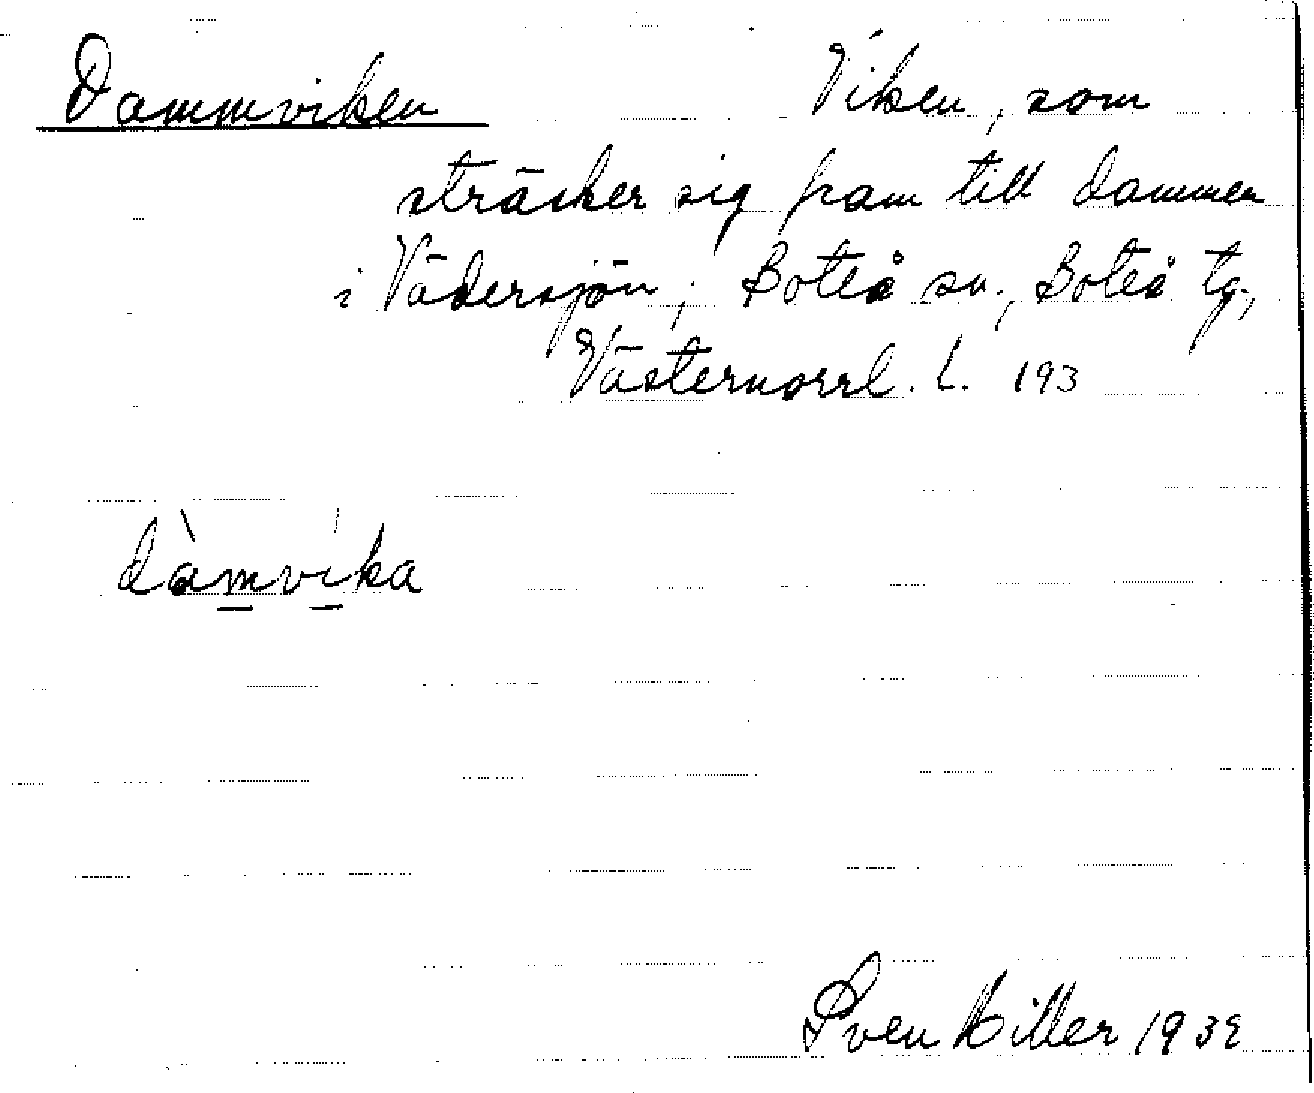 Dammviken Viken, som
sträcker sig fram till dammen
i Vädersjön, Boteå sn., Boteå tg.,
Västernorrl. L. 193
dàmvika
Sven Hiller 193